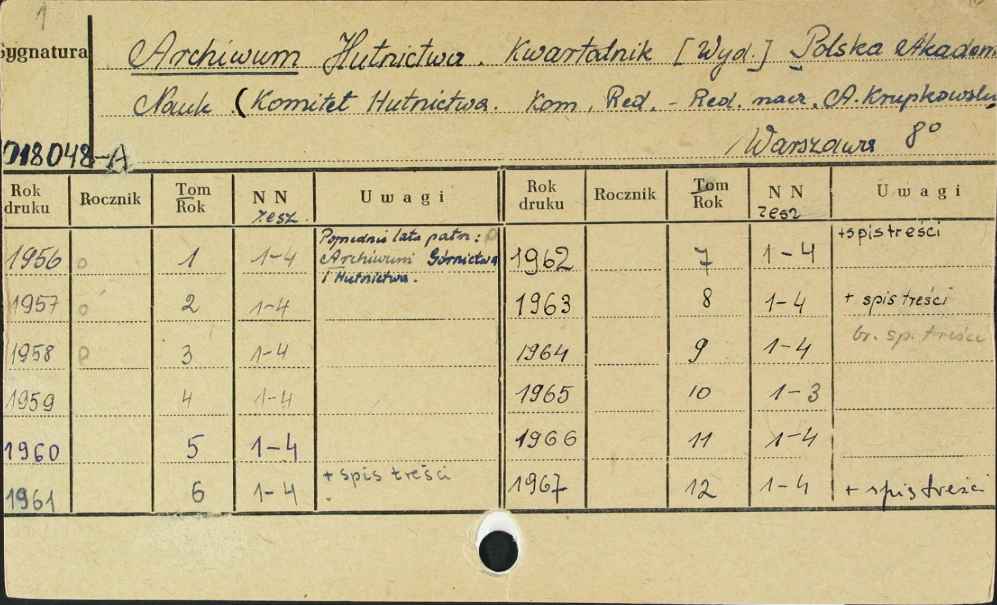 1
Sygnatura
Archiwum Hutnictwa. Kwartalnik [Wyd.] Polska Akadem
Nauk (Komitet Hutnictwa. Kom. Red. - Red. nacz. A. Krupkowski,
Warszawa 8°
018048-A
Rok druku Rocznik Tom Rok NN zesz. Uwagi Rok druku Rocznik Tom Rok NN zesz Uwagi
1956 o 1 1-4 Poprednie lata patrz: Archiwum Górnictwa i Hutnictwa. 1962 7 1-4 +spis treści
1957 o 2 1-4 1963 8 1-4 + spis treści
1958 o 3 1-4 1964 9 1-4 br. sp. treści
1959 4 1-4 1965 10 1-3
1960 5 1-4 1966 11 1-4
1961 6 1-4 + spis treści 1967 12 1-4 + spis treści